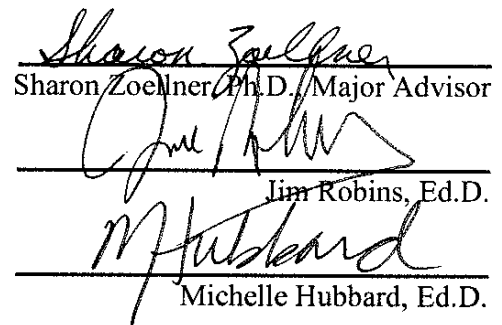 Sharon Zoellner
Sharon Zoellner, Ph.D., Major Advisor
Jim Robins
Jim Robins, Ed.D.
M Hubbard
Michelle Hubbard, Ed.D.